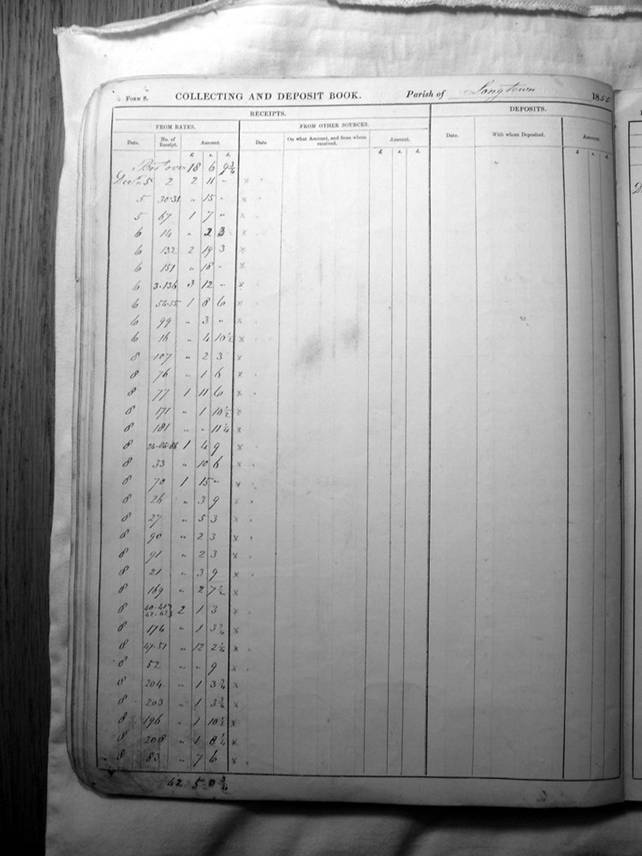 Form 8. COLLECTING AND DEPOSIT BOOK. Parish of Langtown 185
RECEIPTS. DEPOSITS.
FROM RATES. FROM OTHER SOURCES.
Date. No. of Receipt. Amount. Date. On what Account, and from whom received. Amount. Date. With whom Deposited. Amount.
£ s. d. £ s. d. £ s. d.
over 18 6 9¾
5 2 2 11 "
5 30-31 " 15 "
5 67 1 7 "
6 14 " 2 3
6 132 2 19 3
6 151 " 18 "
6 3-136 3 12 "
6 54-55 1 8 6
6 99 " 3 "
6 16 " 4 10½
8 107 " 2 3
8 76 " 1 6
8 77 1 11 6
8 171 " 1 10½
8 181 " " 11¼
8 1 4 9
8 33 " 10 6
8 70 1 15 "
8 26 " 3 9
8 27 " 5 3
8 90 " 2 3
8 91 " 2 3
8 21 " 3 9
8 169 " 2 7½
8 2 1 3
8 174 " 1 3¾
8 47-51 " 12 2¼
8 52 " " 9
8 204 " 1 3¾
8 203 " 1 3¾
8 196 " 1 10½
8 208 " 1 8¼
8 83 " 7 6
62 5 0¾